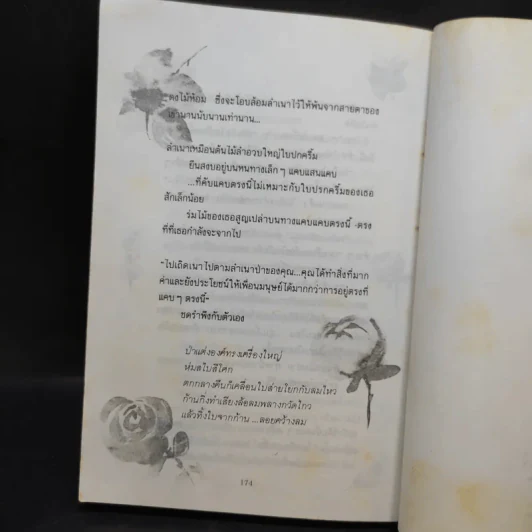 ดงไม้หอม ซึ่งจะโอบล้อมลำเนาไว้ให้พ้นจากสายตาของ
เขานานนับนานเท่านาน...
ลำเนาเหมือนต้นไม้ลำอวบใหญ่ใบปกครึ้ม
ยืนสงบอยู่บนหนทางเล็ก ๆ แคบแสนแคบ
...ที่คับแคบตรงนี้ไม่เหมาะกับใบปรกครึ้มของเธอ
สักเล็กน้อย
ร่มไม้ของเธอสูญเปล่าบนทางแคบแคบตรงนี้ -ตรง
ที่ที่เธอกำลังจะจากไป
"ไปเถิดเนาไปตามลำเนาป่าของคุณ...คุณได้ทำสิ่งที่มาก
ค่าและยังประโยชน์ให้เพื่อนมนุษย์ได้มากกว่าการอยู่ตรงที่
แคบ ๆ ตรงนี้"
ชดรำพึงกับตัวเอง
ป่าแต่งองค์ทรงเครื่องใหญ่
ห่มสไบสีโศก
ตกกลางคืนก็เคลื่อนไปส่ายโยกกับลมไหว
ก้านกิ่งทำเสียงล้อลมพลางกวัดไกว
แล้วทิ้งใบจากก้าน ...ลอยคว้างลม
174